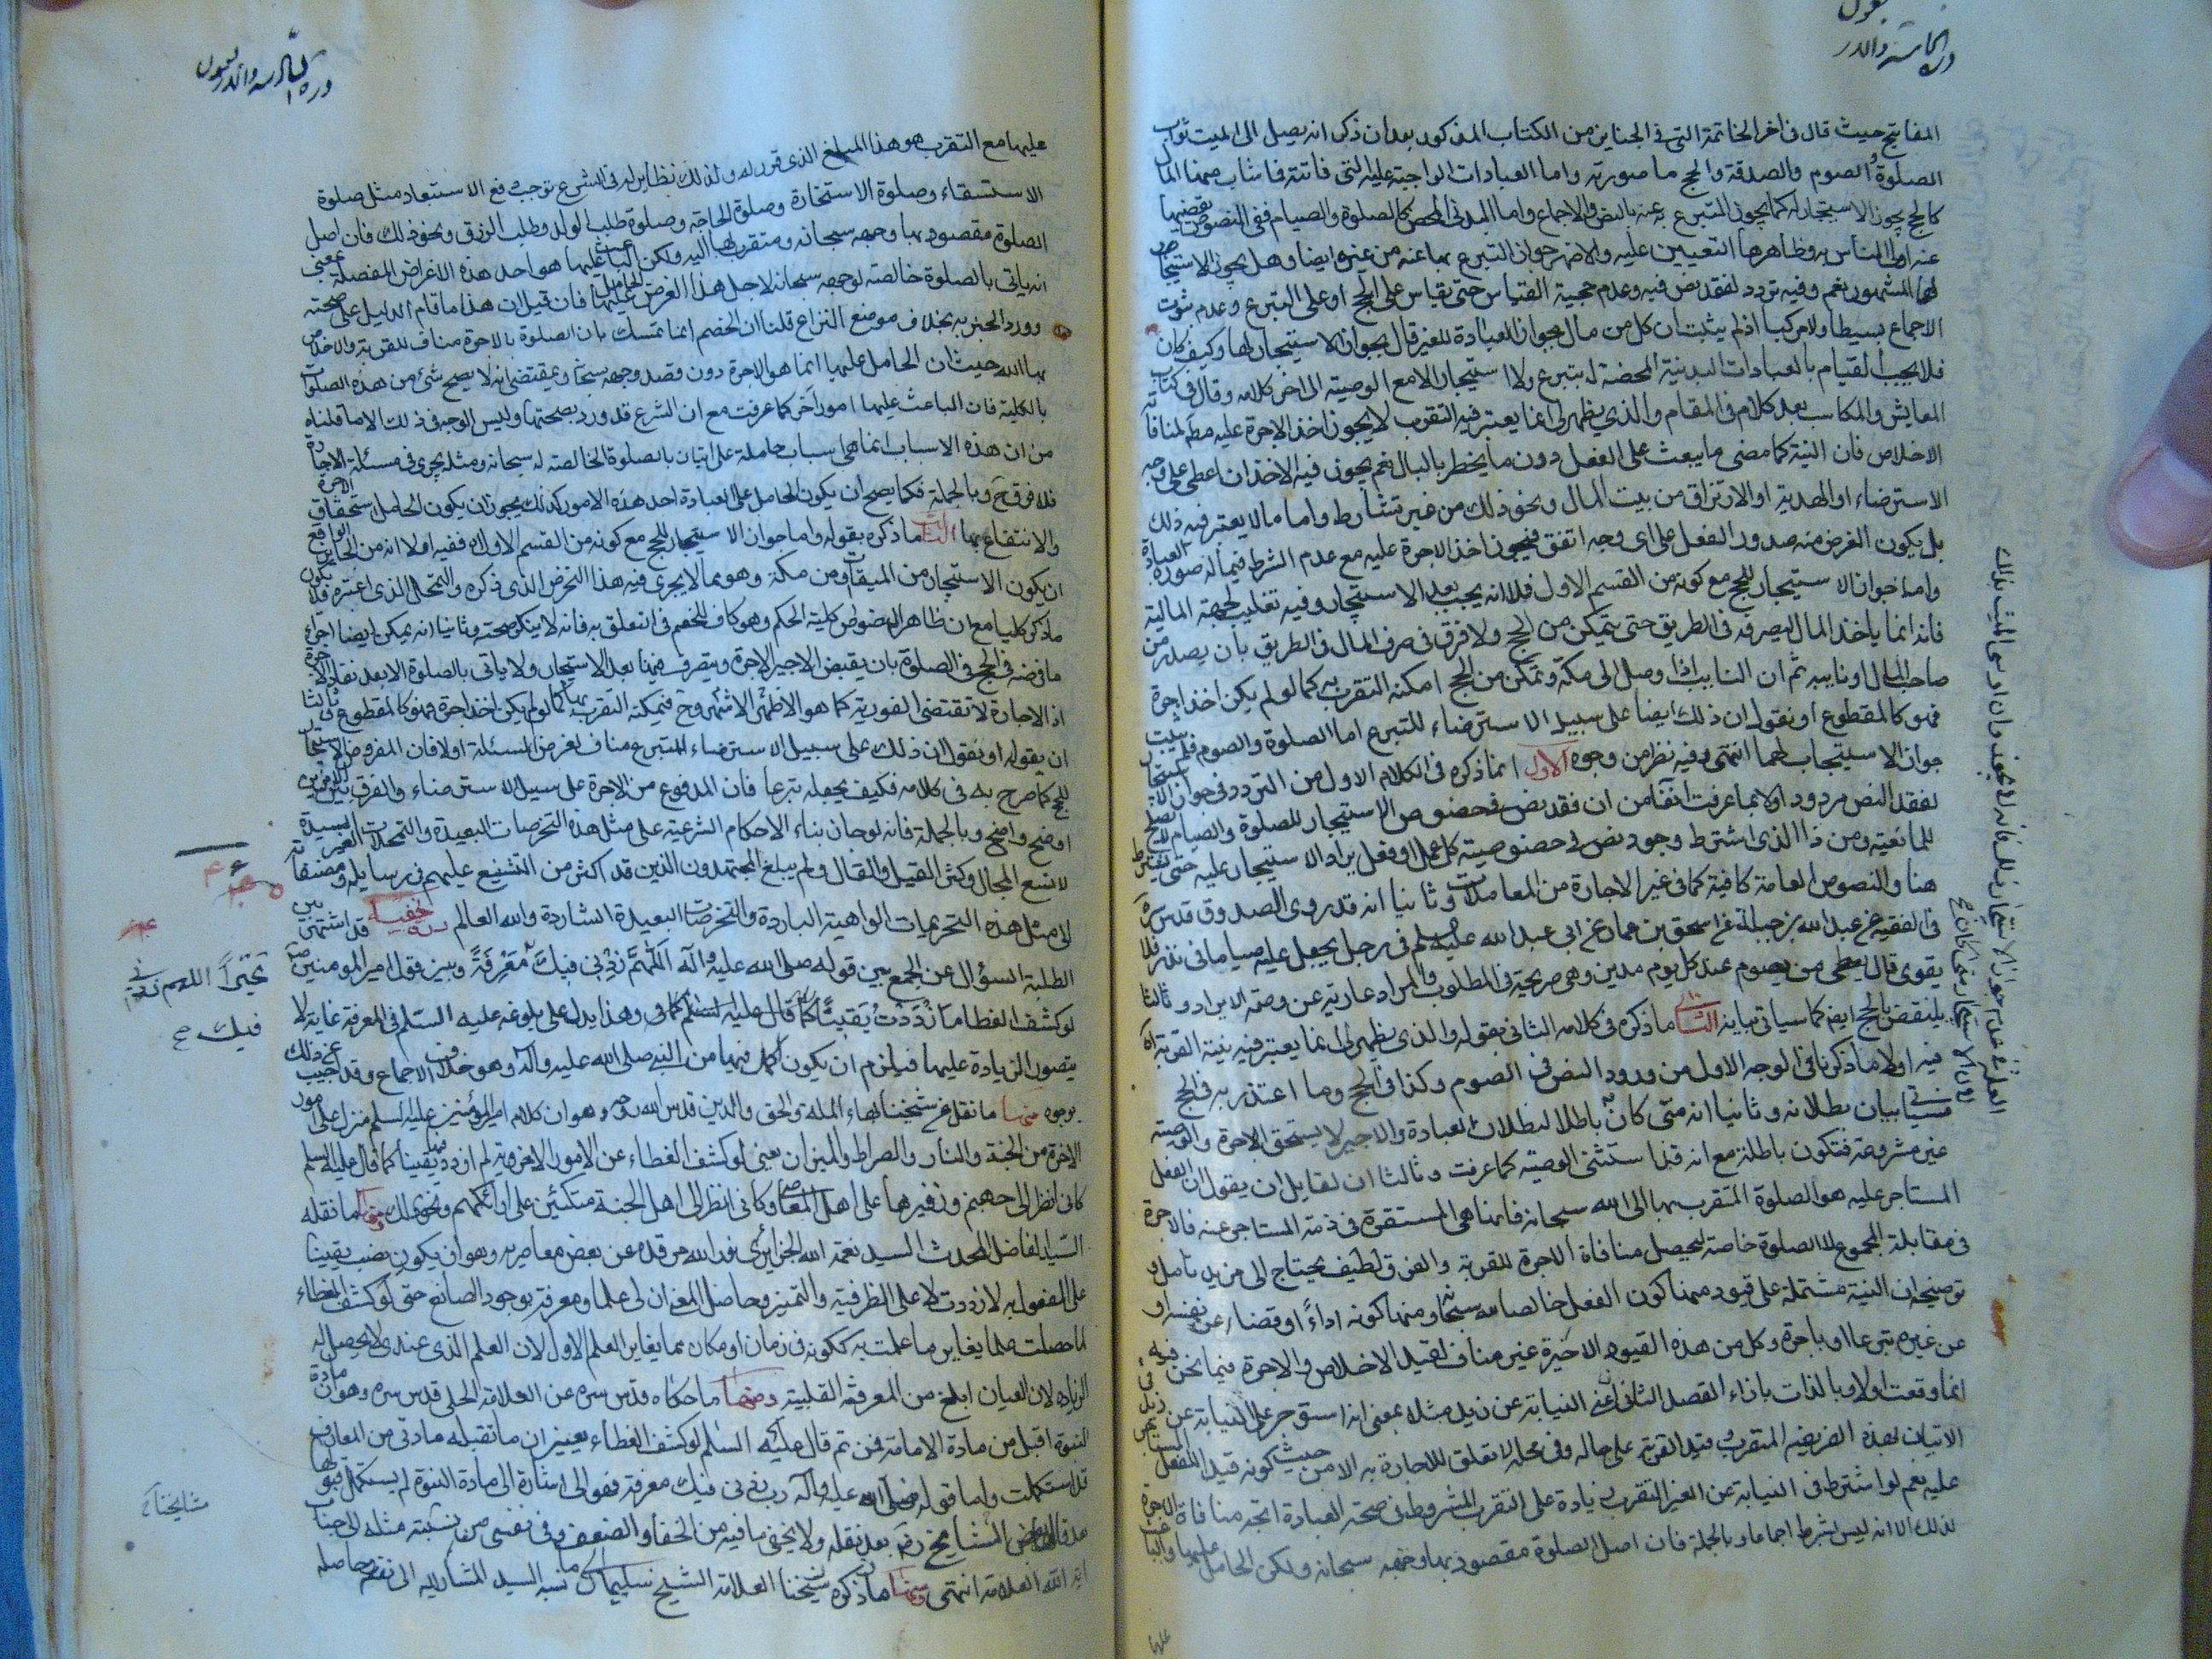 المفاتيح حيث قال في اخر الخاتمة التي في الجنايز من الكتاب المذكور بعد ان ذكر انه يصل الى الميت ثواب
الصلوة والصوم والصدقة والحج ما صورته واما العبادات الواجبة عليه التي فاتته فما شاب منها المال
كالحج يجوز الاستيجار له كما يجوز التبرع به عنه بالنص والاجماع واما البدني المحض كالصلوة والصيام ففي النصوص يقضيها
عنه اولى الناس به وظاهرها التعيين عليه والاظهر جواز التبرع بها عنه من غيره ايضا وهل يجوز الاستيجار
لهما المشهور نعم وفيه تردد لفقد نص فيه وعدم حجية القياس حتى يقاس على الحج او على التبرع وعدم ثبوت
الاجماع بسيطا ولا مركبا اذ لم يثبت ان كل من قال بجواز العبادة للغير قال بجواز الاستيجار لها وكيف كان
فلا يجب القيام بالعبادات البدنية المحضة له بتبرع ولا استيجار الا مع الوصية الى اخر كلامه وقال في كتاب
المعايش والمكاسب بعد كلام في المقام والذي يظهر لي انما يعتبر فيه التقرب لا يجوز اخذ الاجرة عليه مطلقا لمنافاته
الاخلاص فان النية كما مضى ما يبعث على الفعل دون ما يخطر بالبال نعم يجوز فيه الاخذ ان اعطى على وجه
الاسترضاء او الهدية او الارتزاق من بيت المال ونحو ذلك من غير تشارط واما ما لا يعتبر فيه ذلك
بل يكون الغرض منه صدور الفعل على اي وجه اتفق فيجوز اخذ الاجرة عليه مع عدم الشرط فيما له صورة العبادة
واما جواز الاستيجار للحج مع كونه من القسم الاول فلانه يجب بعد الاستيجار وفيه تغليب لجهة المالية
فانه انما ياخذ المال ليصرفه في الطريق حتى يتمكن من الحج ولا فرق في صرف المال في الطريق بان يصدر من
صاحب المال او نايبه ثم ان النايب اذا وصل الى مكة وتمكن من الحج امكنه التقرب به كما لو لم يكن اخذ اجرة
فهو كالمقطوع او نقول ان ذلك ايضا على سبيل الاسترضاء للتبرع اما الصلوة والصوم فلم يثبت
جواز الاستيجار لهما انتهى وفيه نظر من وجوه الاول انما ذكره في الكلام الاول من التردد في جواز الاستيجار
لفقد النص مردود اولا بما عرفت انفا من ان فقد نص في خصوص الاستيجار للصلوة والصيام لا يصلح
للمانعية ومن ذا الذي اشترط وجود نص في خصوصية كل عمل او فعل يراد الاستيجار عليه حتى يشترط
هنا والنصوص العامة كافية كما في غير الاجارة من المعاملات وثانيا انه قد روى الصدوق قدس سره
في الفقيه عن عبد الله بن جبلة عن اسحق بن عمار عن ابي عبد الله عليه السلم في رجل يجعل عليه صياما في نذر فلا
يقوى قال يعطى من يصوم عنه كل يوم مدين وهي صريحة في المطلوب والمراد عارية عن وصمة الايراد وثالثا
بلنقض بالحج ايضا كما سياتي بيانه الثاني ما ذكره في كلامه الثاني بقوله والذي يظهر لي انما يعتبر فيه نية القربة اه
فيه اولا ما ذكرنا في الوجه الاول من ورود النص في الصوم وكذا في الحج وما اعتذر به في الحج
فسياتي بيان بطلانه وثانيا انه متى كان باطلا لبطلان العبادة والاجير لا يستحق الاجرة والوصية
غير مشروعة فتكون باطلة مع انه قد استثنى الوصية كما عرفت وثالثا ان لقايل ان يقول ان الفعل
المستاجر عليه هو الصلوة المتقرب بها الى الله سبحانه فانها هي المستقرة في ذمة المستاجر عنه فالاجرة
في مقابلة المجموع لا الصلوة خاصة ليحصل منافاة الاجرة للقربة والفرق لطيف يحتاج الى مزيد تامل
توضيحه ان النية مشتملة على قيود منها كون الفعل خالصا لله سبحانه ومنها كونه اداءً او قضاء عن نفسه او
عن غيره تبرعا او باجرة وكل من هذه القيود الاخيرة غير مناف لقيد الاخلاص والاجرة فيما نحن فيه
انما وقعت اولا وبالذات بازاء القصد الثاني اعني النيابة عن زيد مثلا بمعنى انه استوجر على النيابة عن زيد في
الاتيان بهذه الفريضة المتقرب بها وقيد القربة على حاله وفي محله لا تعلق للاجارة به الا من حيث كونه قيدا للفعل
عليه نعم لو اشترط في النيابة عن الغير التقرب زيادة على التقرب المشروط في صحة العبادة اتجه منافاة الاجرة
لذلك الا انه ليس بشرط اجماعا وبالجملة فان اصل الصلوة مقصود بها وجهه سبحانه ولكن الحامل عليها والباعث
عليها مع التقرب هو هذا المبلغ الذي قرر له ولذلك نظاير في الشرع توجب رفع الاستبعاد مثل صلوة
الاستسقاء وصلوة الاستخارة وصلوة الحاجة وصلوة طلب الولد وطلب الرزق ونحو ذلك فان اصل
الصلوة مقصود بها وجهه سبحانه ومتقرب بها اليه ولكن الباعث عليها هو احد هذه الاغراض المفصلة بمعنى
انه ياتي بالصلوة خالصة لوجهه سبحانه لاجل هذا الغرض الحامل عليها فان قيل ان هذا ما قام الدليل على صحته
وورد الخبر به بخلاف موضع النزاع قلنا ان الخصم انما تمسك بان الصلوة بالاجرة مناف للقربة والاخلاص
بها لله حيث ان الحامل عليها انما هو الاجرة دون قصد وجهه سبحانه وبمقتضى انه لا يصح شيء من هذه الصلوات
بالكلية فان الباعث عليها امور اخر كما عرفت مع ان الشرع قد ورد بصحتها وليس الوجه في ذلك الا ما قلناه
من ان هذه الاسباب انما هي اسباب حاملة على اتيان بالصلوة الخالصة له سبحانه ومثله يجري في مسئلة الاجارة
فلا فرق ح وبالجملة فكما يصح ان يكون الحامل على العبادة احد هذه الامور كذلك يجوز ان يكون الحامل استحقاق الاجرة
والانتفاع بها الثالث ما ذكره بقوله واما جواز الاستيجار للحج مع كونه من القسم الاول اه ففيه اولا انه من الجايز الواقع
ان يكون الاستيجار من الميقات ومن مكة وهو مما لا يجري فيه هذا التخرص الذي ذكره والتمحل الذي اعتبره فلا يكون
ما ذكر كليا مع ان ظاهر النصوص كلية الحكم وهو كاف للخصم في التعلق به فانه لا ينكر صحته وثانيا انه يمكن ايضا اجراء
ما فرضه في الحج في الصلوة بان يقبض الاجير الاجرة ويتصرف فيها بعد الاستيجار ولا ياتي بالصلوة الا بعد نفاد الاجرة
اذ الاجارة لا تقتضي الفورية كما هو الاظهر الاشهر وح فيمكنه التقرب بها كما لو لم يكن اخذ اجرة فهو كالمقطوع وثالثا
ان بقوله او نقول ان ذلك على سبيل الاسترضاء للتبرع مناف لفرض المسئلة اولا فان المفروض الاستيجار
للحج كما صرح به في كلامه فكيف يجعله تبرعا فان المدفوع من الاجرة على سبيل الاسترضاء والفرق بين الامرين
اوضح واضح وبالجملة فانه لو جاز بناء الاحكام الشرعية على مثل هذه التخرصات البعيدة والتمحلات الغير السديدة
لاتسع المجال وكثر القيل والقال ولم يبلغ المجتهدون الذين قد اكثر من التشنيع عليهم في رسايله ومصنفاته
الى مثل هذه التخريجات الواهية الباردة والتخرصات البعيدة الشاردة والله العالم درة نجفية قد اشتهر بين
الطلبة السؤال عن الجمع بين قوله صلى الله عليه وآله اللهم زدني فيك معرفةً وبين قول امير المومنين
لو كشف الغطا ما ازددت يقيناً كما قال عليه السلم وهذا يدل على بلوغه عليه السلم في المعرفة غاية لا
يتصور الزيادة عليها فيلزم ان يكون اكمل فيها من النبي صلى الله عليه وآله وهو خلاف الاجماع وقد اجيب عن ذلك
بوجوه منها ما نقل عن شيخنا بهاء الملة والحق والدين قدس الله روحه وهو ان كلام امير المؤمنين عليه السلم منزل على امور
الاخرة من الجنة والنار والصراط والميزان يعني لو كشف الغطاء عن الامور الاخروية لم ازدد فيها يقينا كما قال عليه السلم
كاني انظر الى جهنم وزفيرها على اهل المعاصي وكاني انظر الى اهل الجنة متكئين على ارائكهم ونحو ذلك ومنها ما نقله
السيد الفاضل المحدث السيد نعمة الله الجزايري نور الله مرقده عن بعض معاصريه وهو ان يكون نصب يقينا
على المفعول به لازددت لا على الظرفية والتميز وحاصل المعنى ان لي علما ومعرفة بوجود الصانع حتى لو كشف الغطاء
لما حصلت علما يغاير ما علمت به ككونه في زمان او مكان مما يغاير العلم الاول لان العلم الذي عندي لا يحصل له
الزيادة لان العيان ابلغ من المعرفة القلبية ومنها ما حكاه قدس سره عن العلامة الحلي قدس سره وهو ان مادة
النبوة اقبل من مادة الامامة فمن ثم قال عليه السلم لو كشف الغطاء يعني ان ما تقبله مادتي من المعارف
قد استكملت واما قوله صلى الله عليه وآله رب زدني فيك معرفة فهو الى اشارة الى مادة النبوة لم يستكمل قبولها
بعد نقله ولا يخفى ما فيه من الخفاء والضعف وفي نفسي من نسبته مثله الى جناب
اية الله العلامة انتهى ومنها ما ذكره شيخنا العلامة الشيخ سليمان
تحيراً اللهم زدني
فيك
مشايخنا